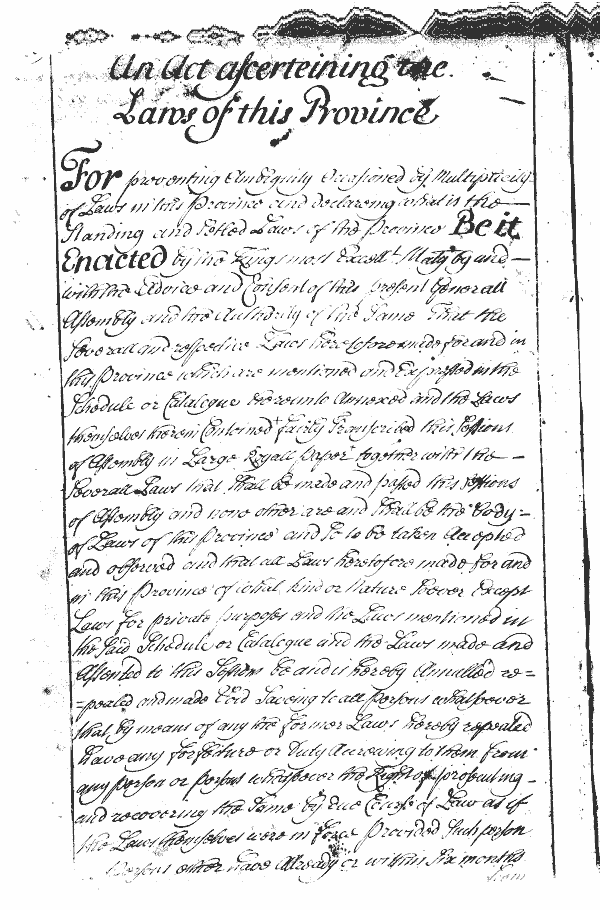 An Act ascerteining the
Laws of this Province
For preventing Ambiguity Occasioned by Multiplicity
of Laws in this Province and declareing what is the
Standing and Setled Laws of the Province Be it
Enacted by the Kings most Excellt Maty by and
with the Advice and Consent of this present Generall
Assembly and the Authority of the Same That the
Severall and respective Laws heretofore made for and in
this Province which are mentioned and Expressed in the
Schedule or Catalogue hereunto Annexed and the Laws
themselves therein Contained fairly Transcribed this Session
of Assembly in Large Royall paper together with the
Severall Laws that Shall be made and passed this Sessions
of Assembly and none other are and Shall be the Body=
of Laws of this Province and So to be taken Accepted
and observed and that all Laws heretofore made for and
in this Province of what kind or Nature Soever Except
Laws for private purposes and the Laws mentioned in
the Said Schedule or Catalogue and the Laws made and
Assented to this Session be and is hereby Annulled re=
=pealed and made Void Saveing to all Persons whatsoever
that by means of any the former Laws hereby repealed
have any forfeiture or Duty Accrewing to them from
any person or persons whatsoever the Right of prosecuting
and recovering the Same by due Course of Law as if
the Laws themselves were in force Provided Such person
Persons either have Already or within Six months
from